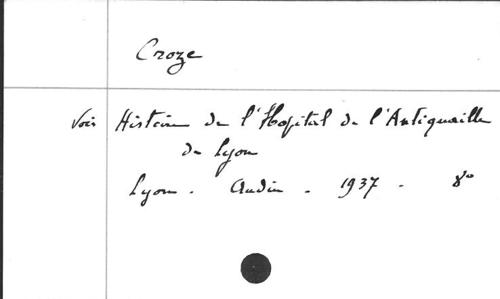 Croze
Voir Histoire de l'Hopital de l'Antiquaille
de Lyon
Lyon. Audin. 1937. 8º